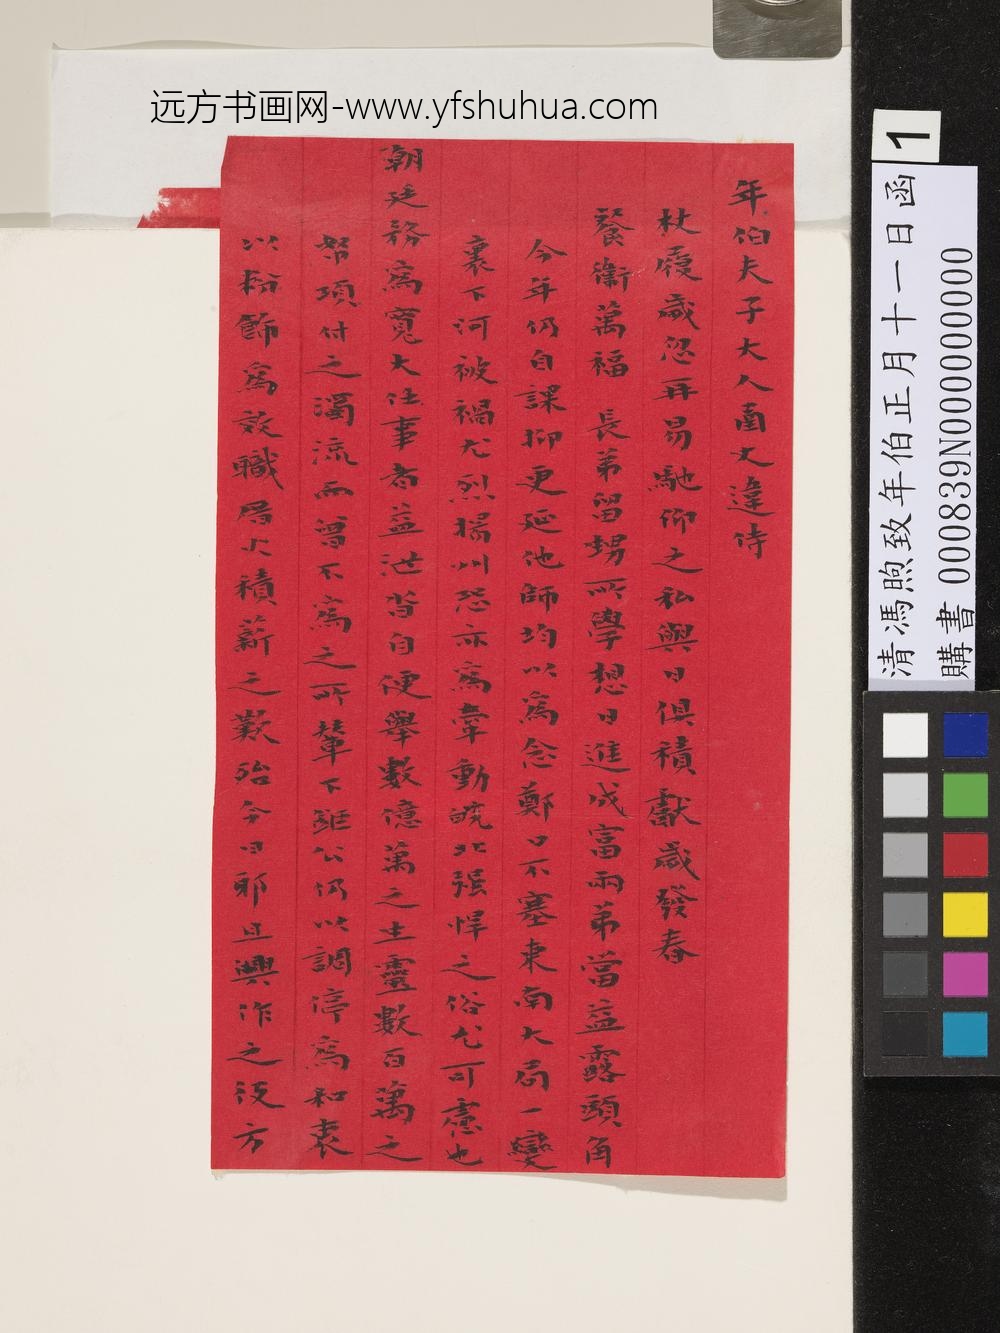 远方书画网-www.yfshuhua.com
年伯夫子大人函丈違侍
杖履歲忽再易馳仰之私與日俱積獻歲發春
餐衛萬福 長弟留甥所學想日進成富兩弟當益露頭角
今年仍自課抑更延他師均以為念鄭口不塞東南大局一變
裏下河被禍尤烈揚州恐亦為牽動皖北强悍之俗尤可慮也
朝廷務為寬大任事者益泄沓自便舉數億萬之生靈數百萬之
帑項付之濁流而曾不為之所輦下鉅公仍以調停為和衷
以粉飾為效職厝火積薪之歎殆今日邪且興作之役方
1
清馮煦致年伯正月十一日函
購書 000839N000000000